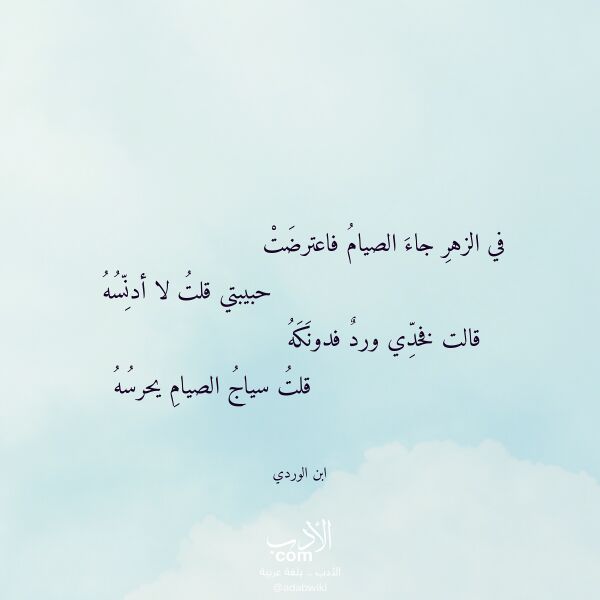 في الزهرِ جاءَ الصيامُ فاعترضَتْ
حبيبتي قلتُ لا أدنِّسُهُ
قالت فخدِّي وردٌ فدونَكَهُ
قلتُ سياجُ الصيامِ يحرسُهُ
ابن الوردي
الأدب
com
الأدب .. بلغة عربية
@adabwiki